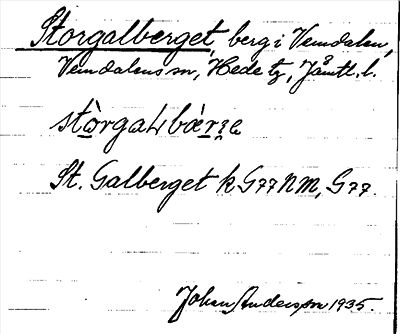 Storgalberget, berg i Vemdalen,
Vemdalens sn, Hede tg, Jämtl. l.
St. Galberget k G77 NM, G77.
Johan Anderson 1935.